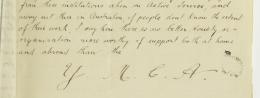 from these institutions when on Active Service, and
many out there in Australia of people don't know the extent
of their work. I say here there is no better Society or
organization more worthy of support both at home
and abroad than the
Y. M. C. A.